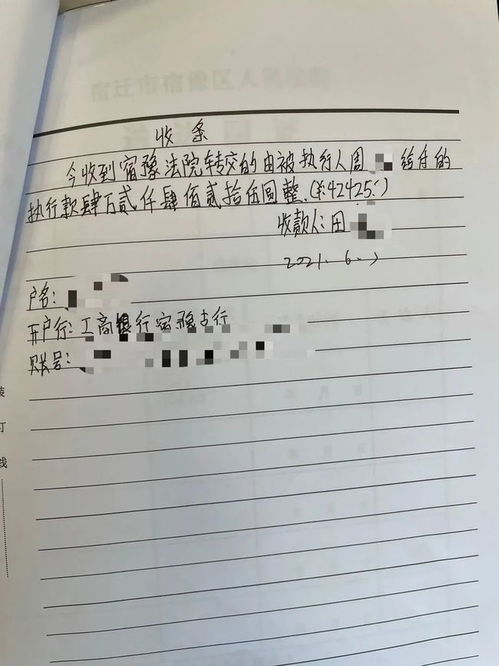 收条
今收到宿豫法院转交的由被执行人周 给付的
执行款肆万贰仟肆佰贰拾伍圆整.(¥42425:)
收款人:田
2021.6.
户名:
开户行:工商银行宿豫支行
账号:
装
订
线